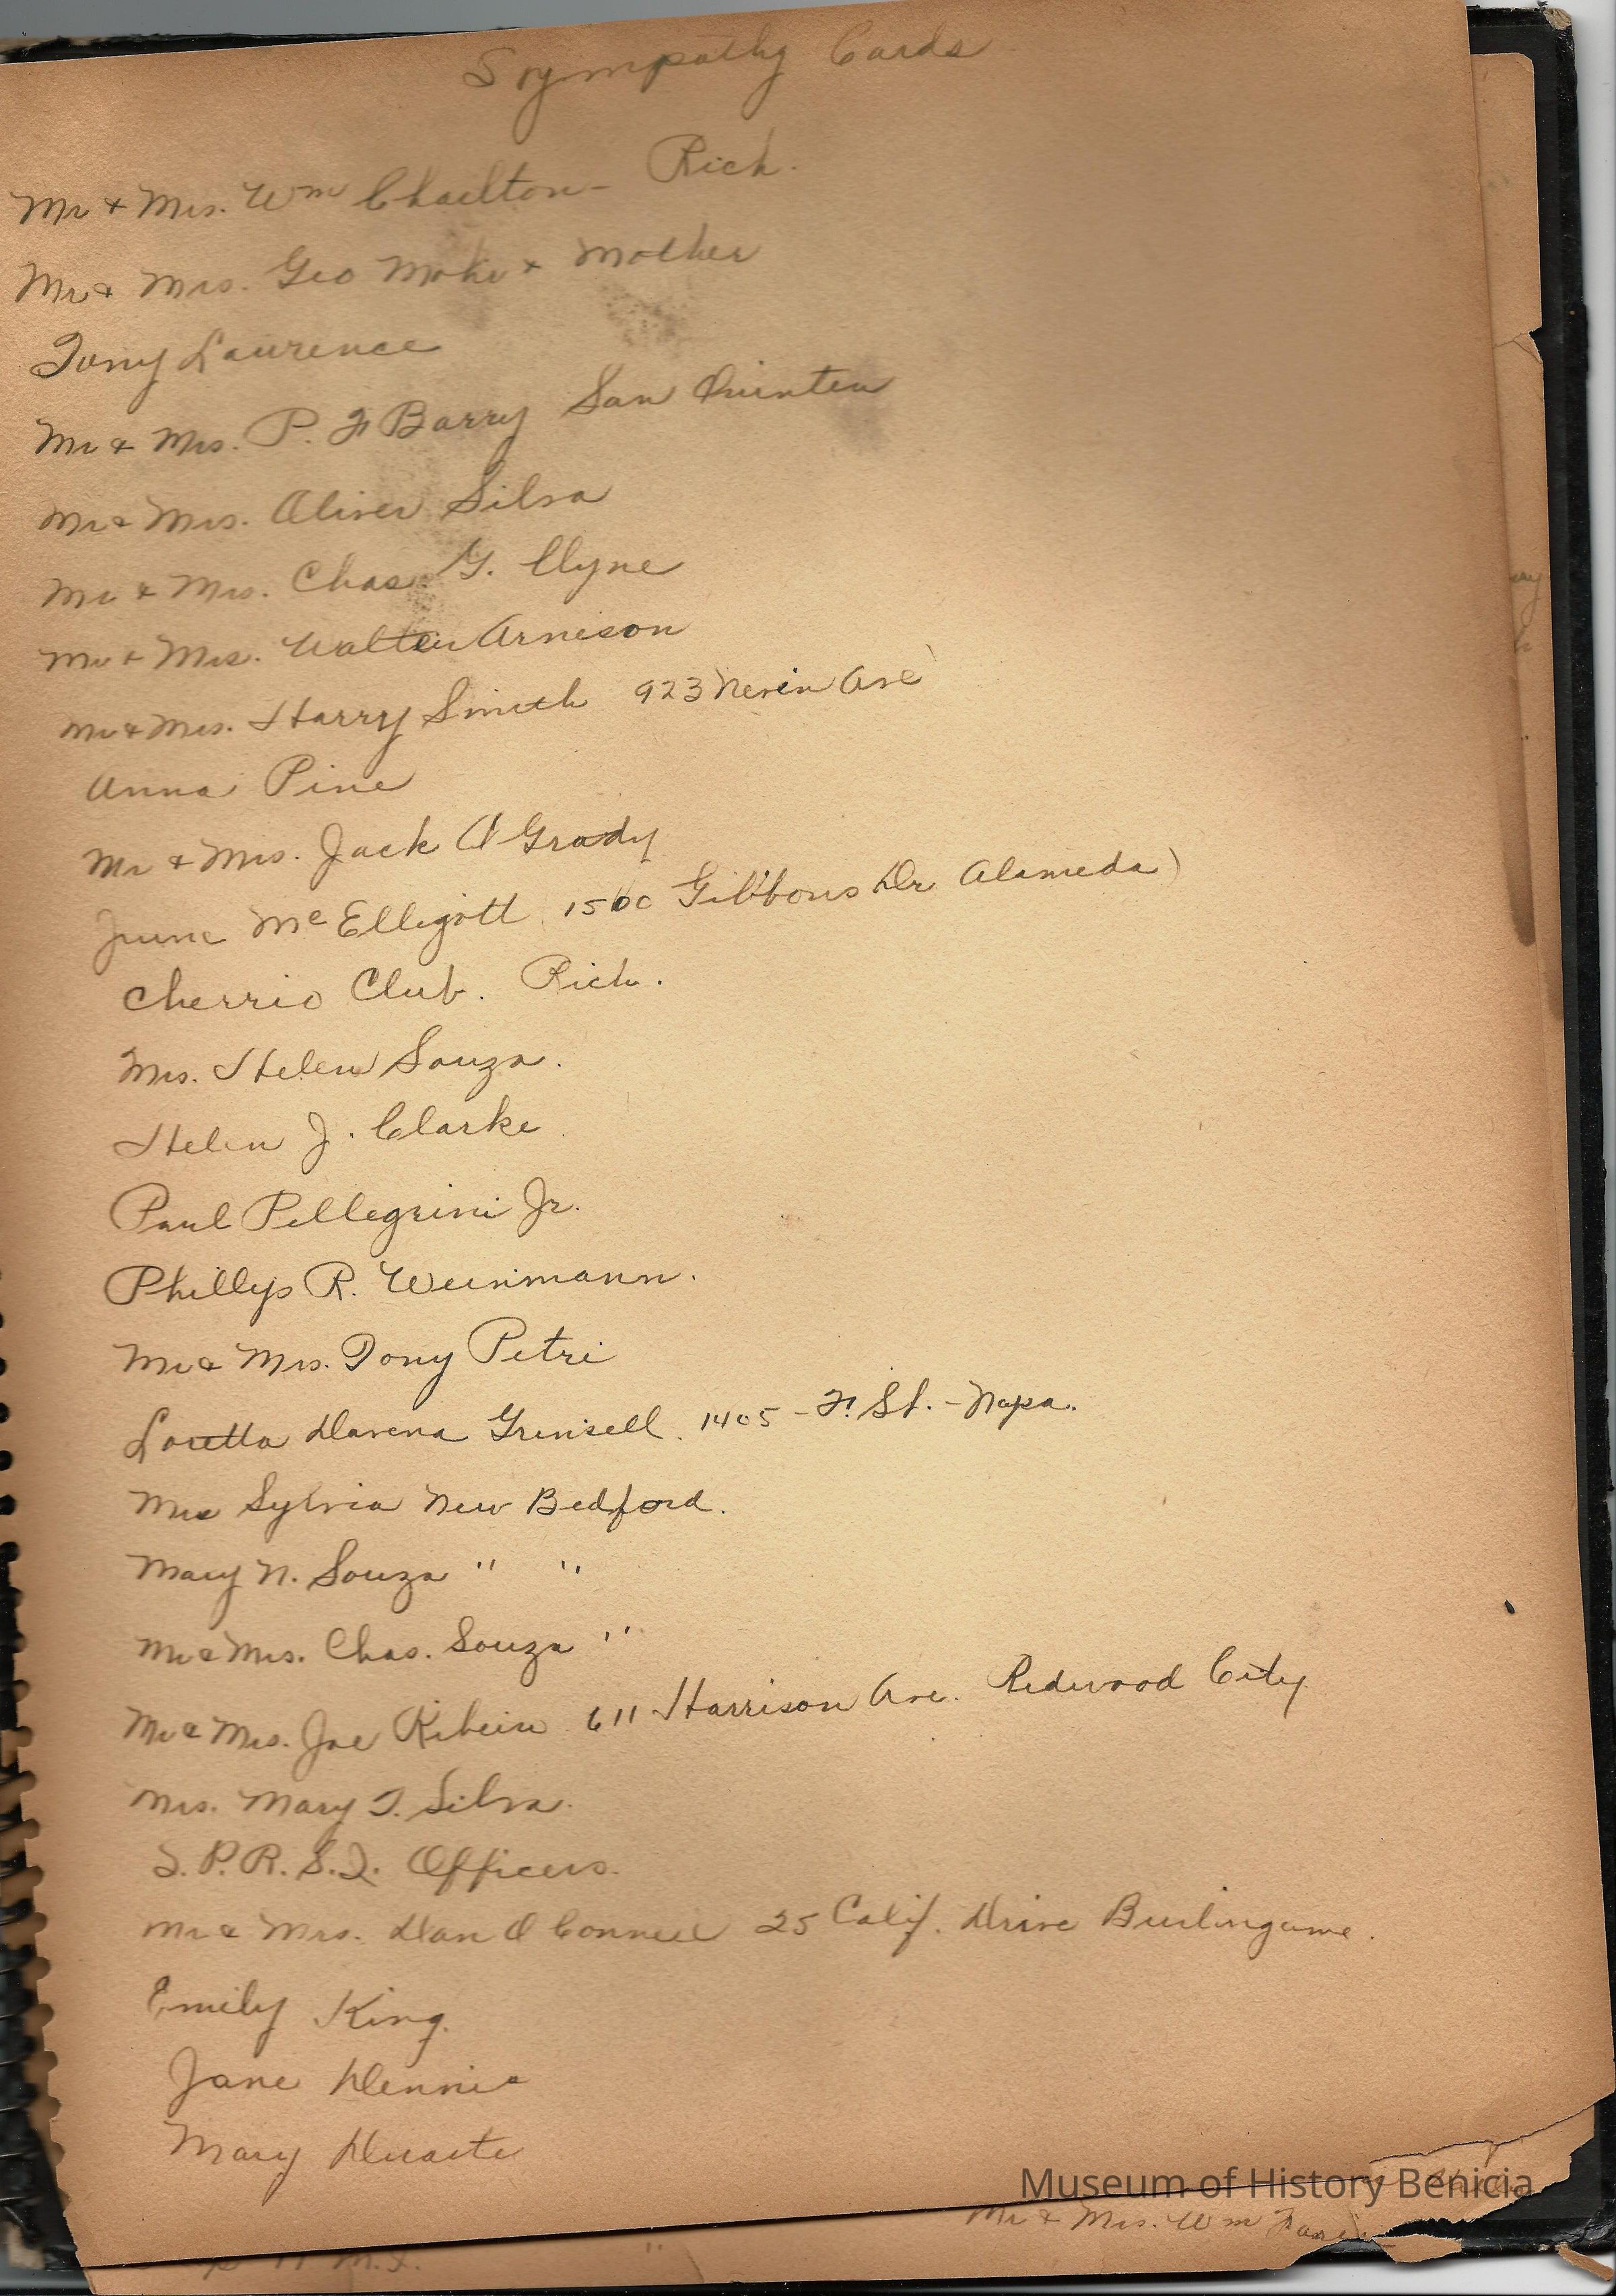 Sympathy Cards
Mr & Mrs. Wm Charlton - Rich.
Mr & Mrs. Geo & Mother
Tony Laurence
Mr & Mrs. P. F Barry San Quinten
Mr & Mrs. Oliver Silva
Mr & Mrs. Chas. G. Clyne
Mr & Mrs. Walter Arneson
Mr & Mrs. Harry Smith 923 Nevin Ave
Anna Pine
Mr & Mrs. Jack O Grady
June McElligott 1500 Gibbons Dr. Alameda)
Cherrio Club. Rich.
Mrs. Helen Souza.
Helen J. Clarke
Paul Pellegrini Jr.
Phillys R. Weinmann.
Mr & Mrs. Tony Petri
Loretta Davena Grinsell. 1405 - F. St. - Napa.
Mrs Sylvia New Bedford.
Mary N. Souza " "
Mr & Mrs. Chas. Souza "
Mr & Mrs. Joe Ribeiro 611 Harrison Ave. Redwood City
Mrs. Mary T. Silva.
S.P.R.S.I. Officers.
Mr & Mrs. Dan O Connell 25 Calif. Drive Burlingame.
Emily King.
Jane Dennis
Mary Duarte
Museum of History Benicia
Mr & Mrs. Wm